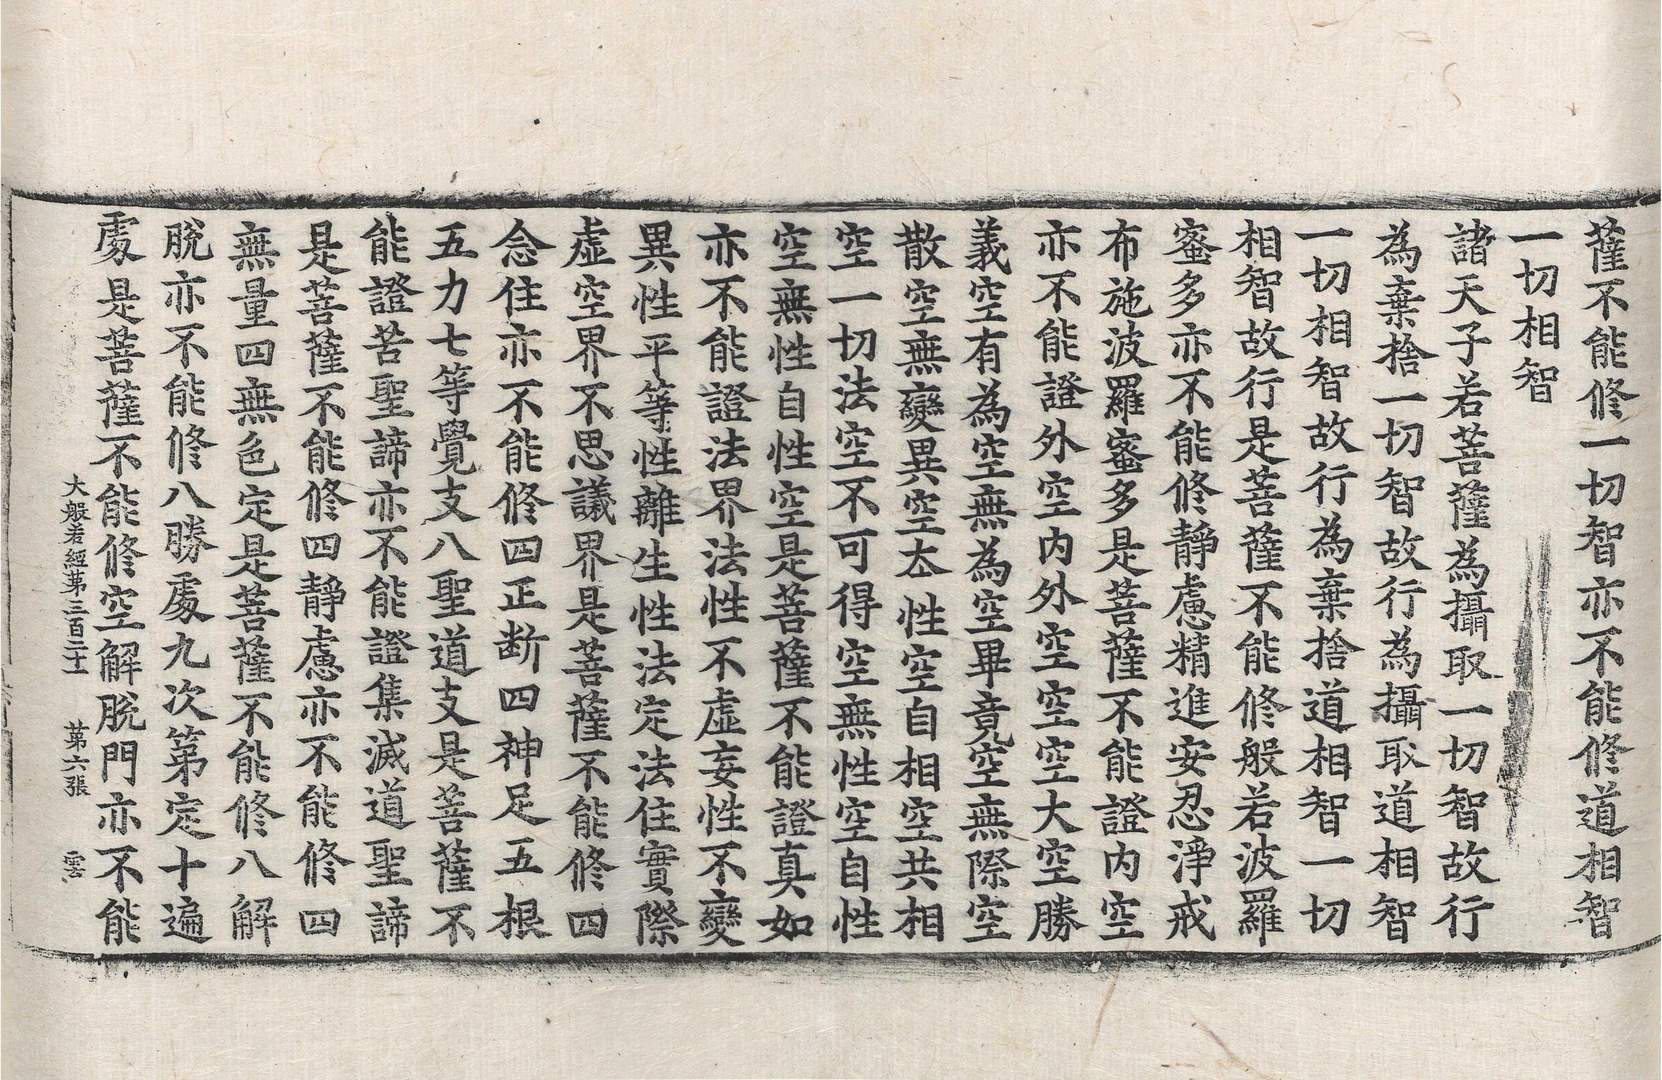 薩不能修一切智亦不能修道相智
一切相智
諸天子若菩薩為攝取一切智故行
為棄捨一切智故行為攝取道相智
一切相智故行為棄捨道相智一切
相智故行是菩薩不能修般若波羅
蜜多亦不能修靜慮精進安忍淨戒
布施波羅蜜多是菩薩不能證內空
亦不能證外空內外空空空大空勝
義空有為空無為空畢竟空無際空
散空無變異空夲性空自相空共相
空一切法空不可得空無性空自性
空無性自性空是菩薩不能證真如
亦不能證法界法性不虛妄性不變
異性平等性離生性法定法住實際
虛空界不思議界是菩薩不能修四
念住亦不能修四正断四神足五根
五力七等覺支八聖道支是菩薩不
能證苦聖諦亦不能證集滅道聖諦
是菩薩不能修四靜慮亦不能修四
無量四無色定是菩薩不能修八解
脫亦不能修八勝處九次第定十遍
處是菩薩不能修空解脫門亦不能
大般若經第三百二十 第六張 雲